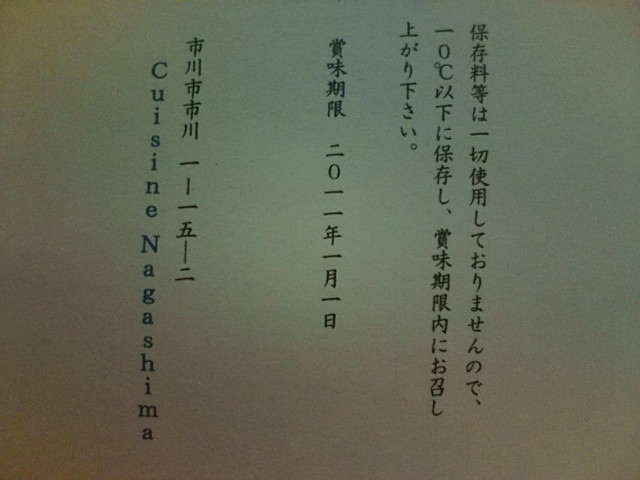 保存料等は一切使用しておりませんので、
一０℃以下に保存し、賞味期限内にお召し
上がり下さい。
賞味期限　二０一一年一月一日
市川市市川　一―一五―二
Cuisine Nagashima